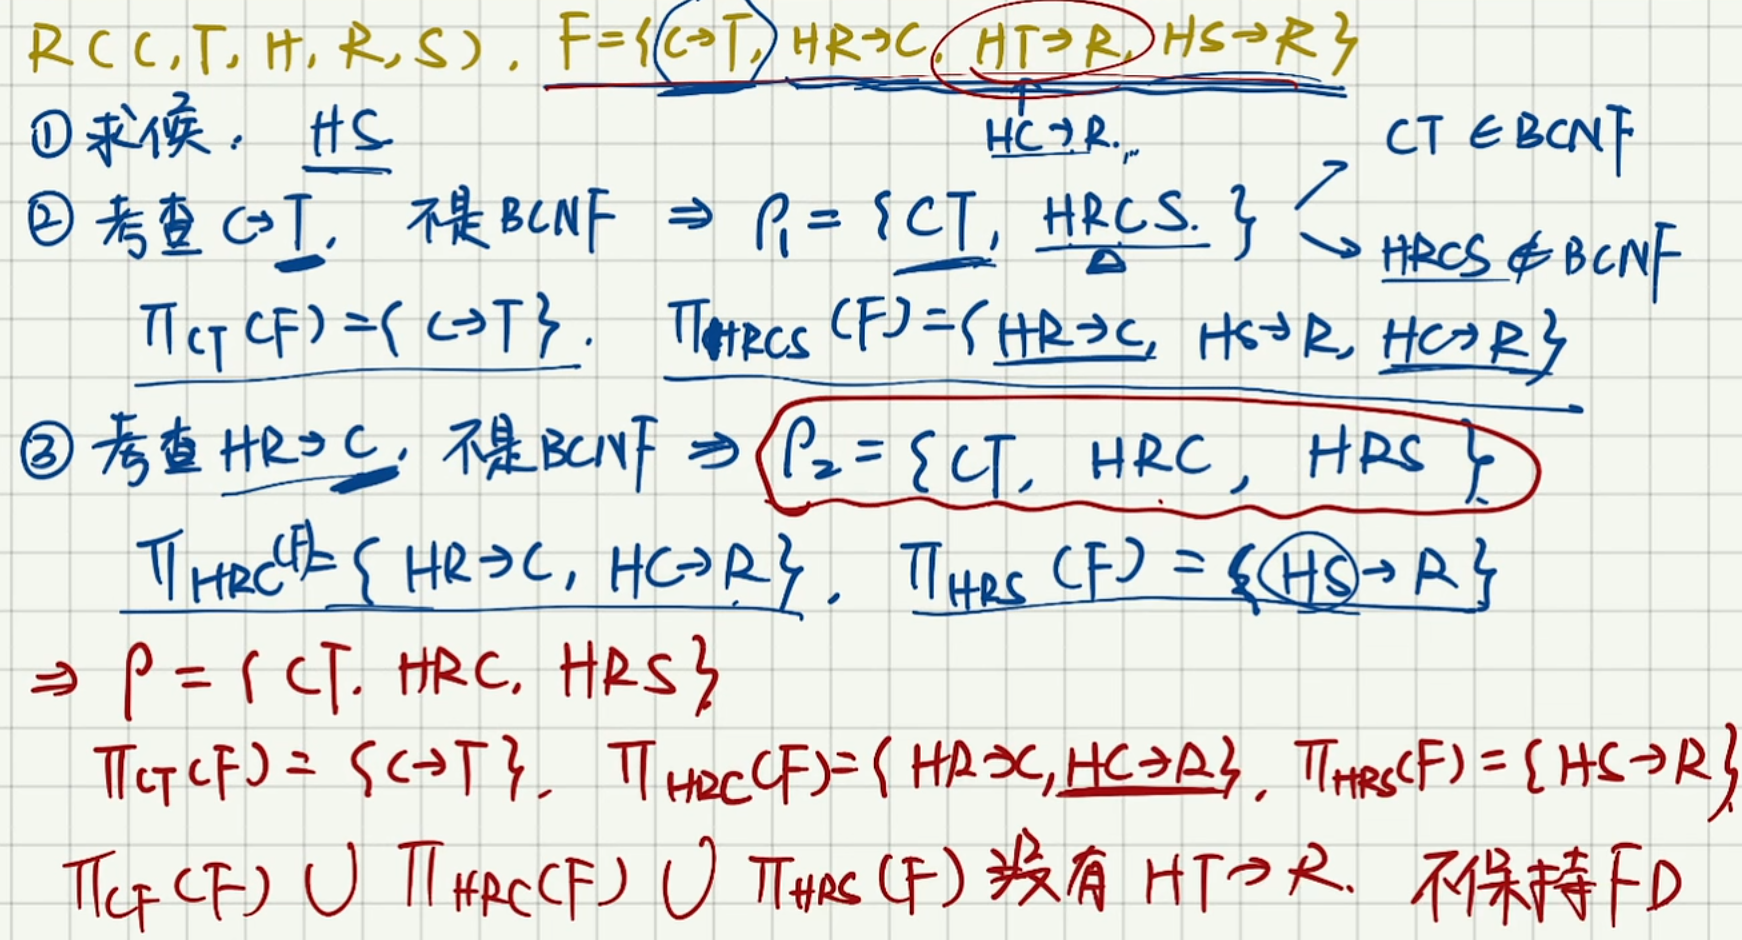 R(C,T,H,R,S). F={C→T, HR→C, HT→R, HS→R}
① 求候. HS
HC→R.
CT ∈ BCNF
② 考查 C→T, 不是BCNF ⇒ ρ₁ = {CT, HRCS.}
HRCS ∉ BCNF
π_CT(F)={C→T}. π_HRCS(F)={HR→C, HS→R, HC→R}
③ 考查 HR→C, 不是BCNF ⇒ ρ₂ = {CT, HRC, HRS}
π_HRC(F)={HR→C, HC→R}. π_HRS(F) = {HS→R}
⇒ ρ = {CT. HRC. HRS}
π_CT(F) = {C→T}. π_HRC(F)={HR→C, HC→R}. π_HRS(F) = {HS→R}
π_CF(F) ∪ π_HRC(F) ∪ π_HRS(F) 没有 HT→R. 不保持FD